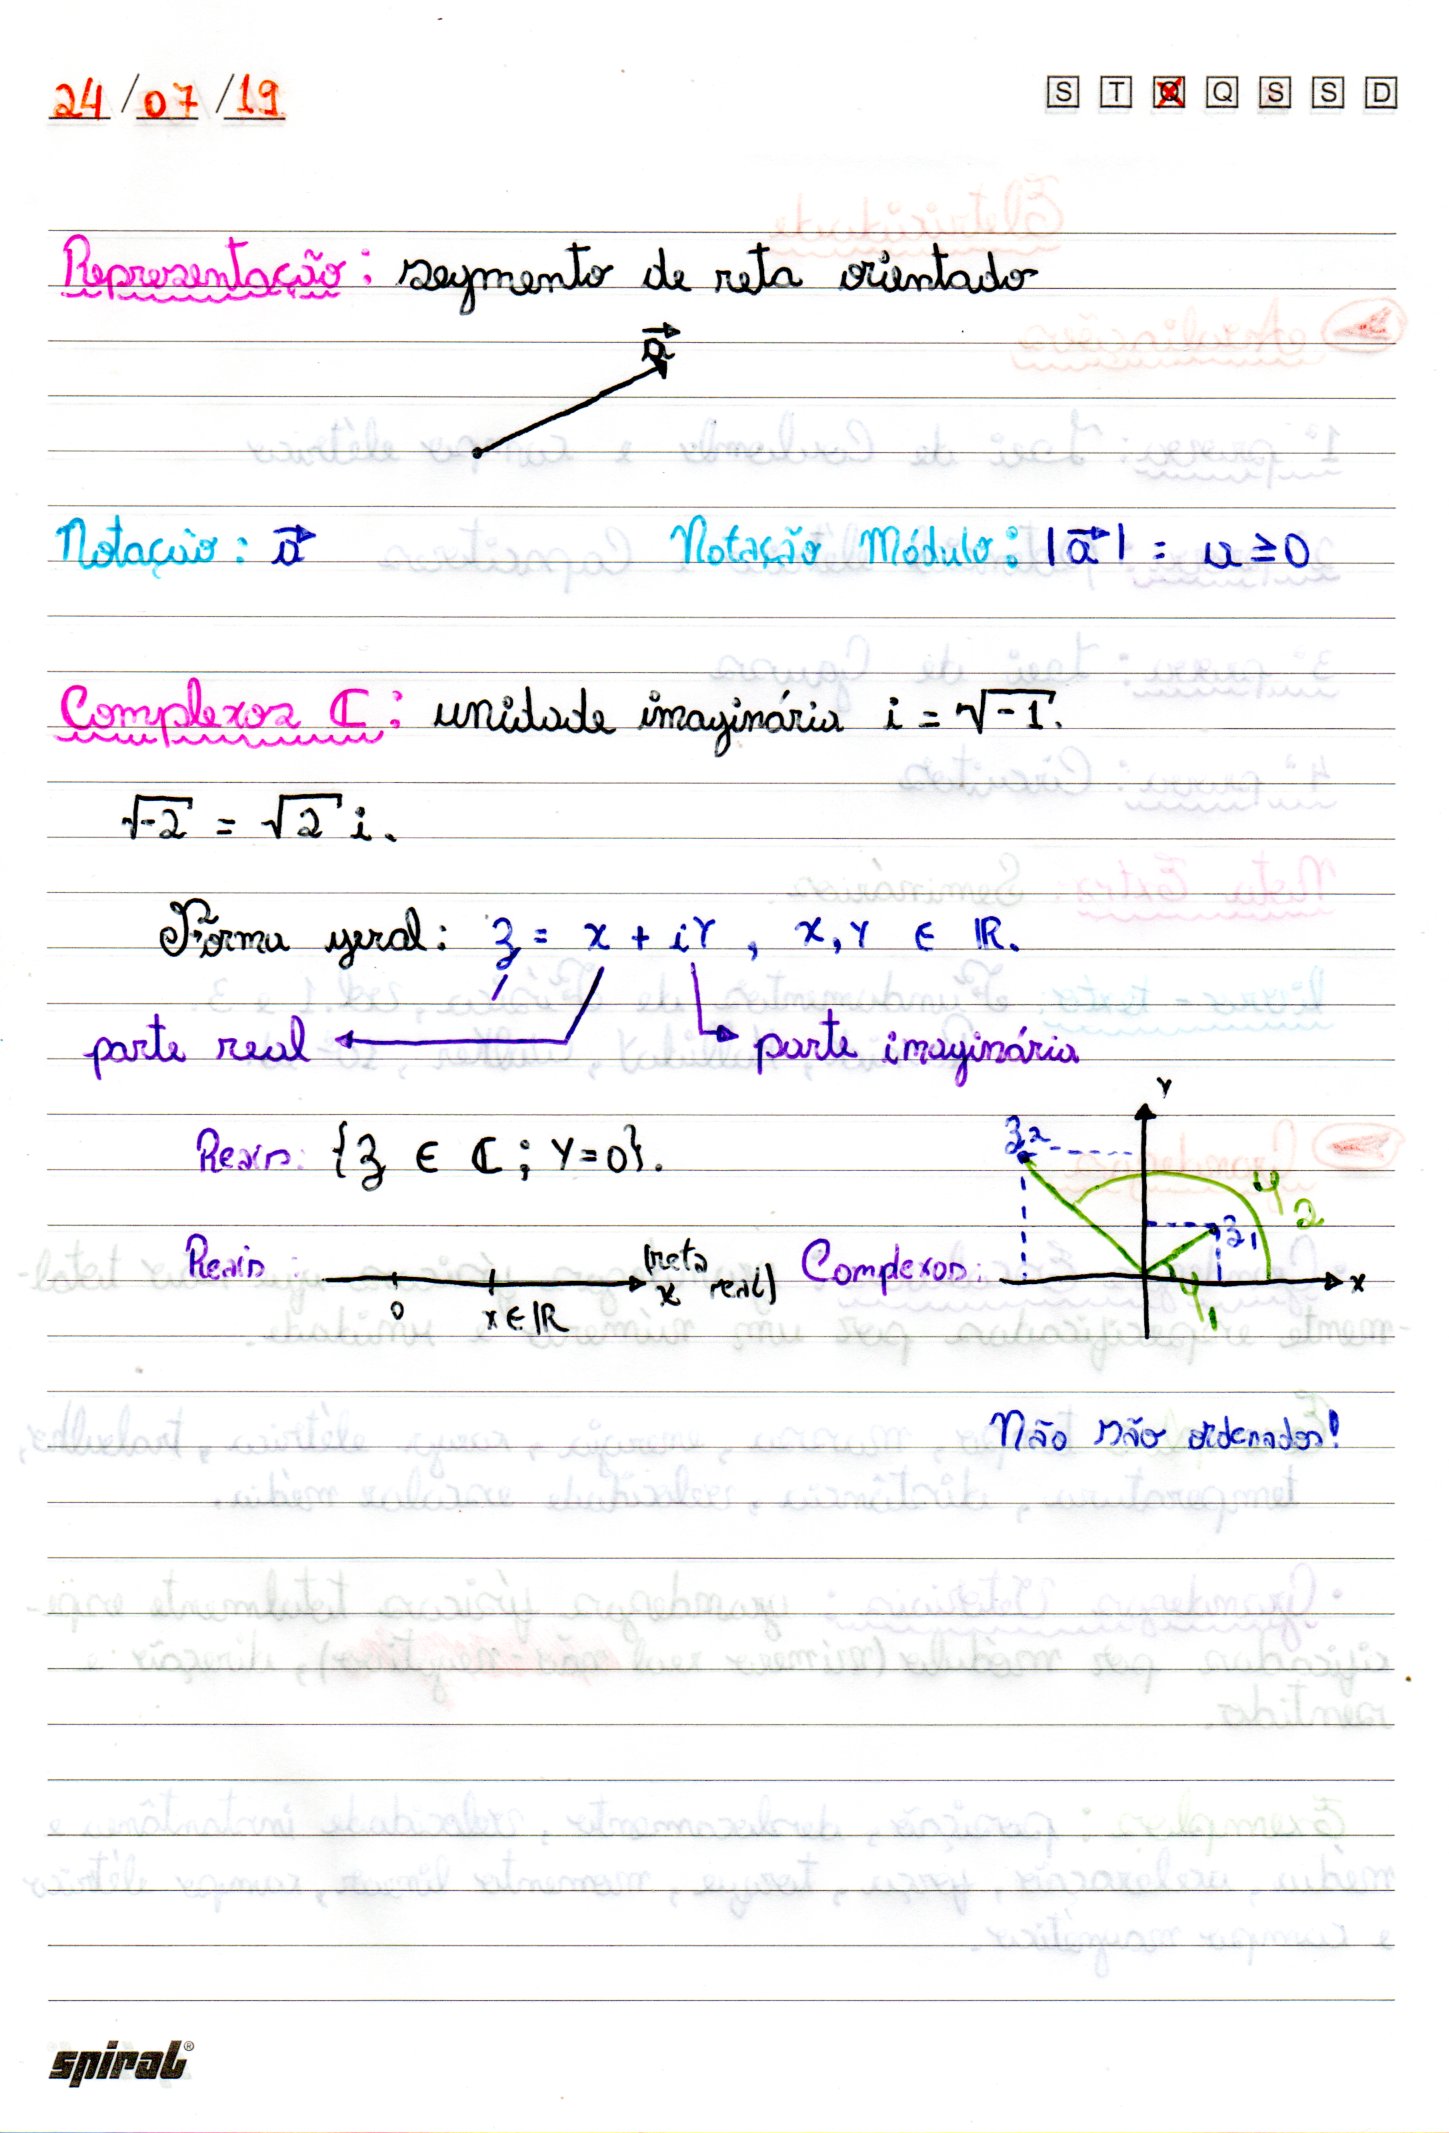 24/07/19 S T Q Q S S D
Representação: segmento de reta orientado
a⃗
Notação: a⃗ Notação Módulo: |a⃗| = a ≥ 0
Complexos ℂ: unidade imaginária i = √-1.
√-2 = √2 i.
Forma geral: z = x + iY, x, Y ∈ ℝ.
parte real parte imaginária
Reais: {z ∈ ℂ; Y=0}.
Y
z2
φ2
z1
Reais: (reta real) Complexos:
0 x ∈ ℝ x x
φ1
Não são ordenados!
spiral®